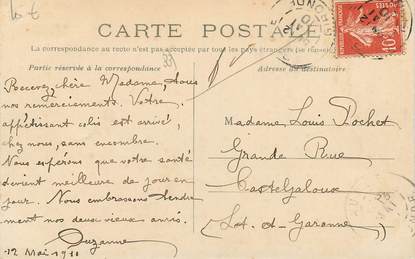 CARTE POSTALE
La correspondance au recto n'est pas acceptée par tous les pays étrangers (se rense
Partie réservée à la correspondance
Adresse du destinataire
Recevez, chère Madame, tous
nos remerciements. Votre
appétissant colis est arrivé,
chez nous, sans encombre.
Nous espérons que votre santé
devient meilleure de jour en
jour. Nous embrassons tendre
ment nos deux vieux amis.
Suzanne
12 Mai 1911
Madame Louis Pochet
Grande Rue
Casteljaloux
(Lot-et-Garonne)
10